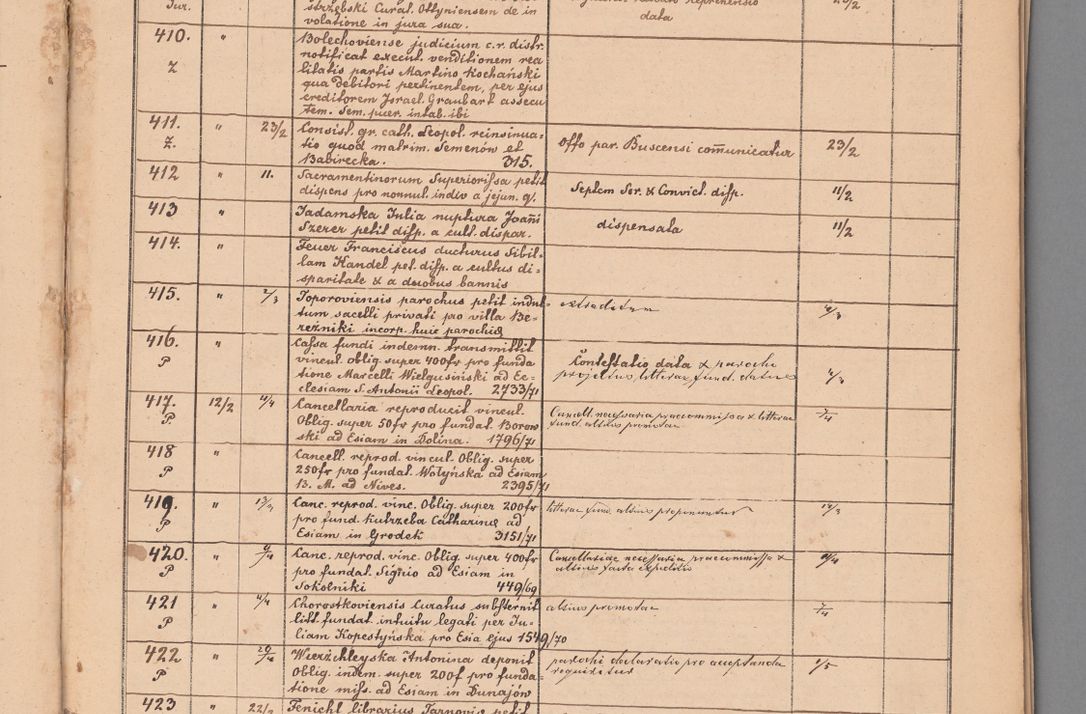 Jur.
strzębski Curat. Ottyniensem de in
volatione in jura sua.
data
23/2
410. "
Z
Bolechoviense judicium c.r. distr.
notificat execut. venditionem rea
litatis partis Martino Kochański
qua debitori pertinentem, per ejus
creditorem Israel Graubart assecu
tem. Sem. puer. intab. ibi
411. " 23/2
Z.
Consist. gr. cath. Leopol. reinsinua-
tio quod matrim. Semenów et
Babirecka. 315.
Offo par. Buscensi com̄unicatur 23/2
412 " 11.
Sacramentinorum Superiorissa petit
dispens pro nonnul. indiv a jejun. q.
Septem Sor. & Convict. disp. 11/2
413 "
Jadamska Julia nuptura Joañi
Szerer petit disp. a cult. dispar.
dispensata 11/2
414. "
Feuer Franciscus ducturus Sibil-
lam Handel pet. disp. a cultus di-
sparitate & a duobus bannis
415. " 2/3
Toporoviensis parochus petit indul-
tum sacelli privati pro villa Be-
rezniki incorp. huic parochiæ
extraditum 4/3
416. "
P
Cassa fundi indemn. transmittit
vincul. oblig. super 400fr pro funda
tione Marcelli Wielgusiński ad Ec-
clesiam S. Antonii Leopol. 2733/71
Contestatio data & parochi
4/3
417. 12/2 4/4
P.
Cancellaria reproducit vincul.
Oblig. super 50fr pro fundat. Borow
ski ad Esiam in Dolina. 1796/71
Cancell. necessaria praecommissa & litterae
fund. altius promotae
418 "
P
Cancell. reprod. vincul. Oblig. super
250fr pro fundat. Wołyńska ad Esiam
B. M. ad Nives. 2395/71
419. "
P
Canc. reprod. vinc. Oblig. super 200fr
pro fund. Kutrzeba Catharinæ ad
Esiam in Grodek 3151/71
litterae fund. altius proponuntur
420. "
P
Canc. reprod. vinc. Oblig. super 400fr
pro fundat. Signio ad Esiam in
Sokolniki 449/69
Cancellariae necessaria praecommissa &
421 " 4/4
P
Chorostkoviensis Curatus substernit
litt. fundat. intuitu legati per Ju-
liam Kopestyńska pro Esia ejus 1549/70
altius promotae
422 "
P
Wierzchleyska Antonina deponit
Oblig. indem. super 200f pro funda-
tione miss. ad Esiam in Dunajów
parochi declaratio pro acceptanda
requiretur
423 " 22/2
Fenichl librarius Tarnovie petit